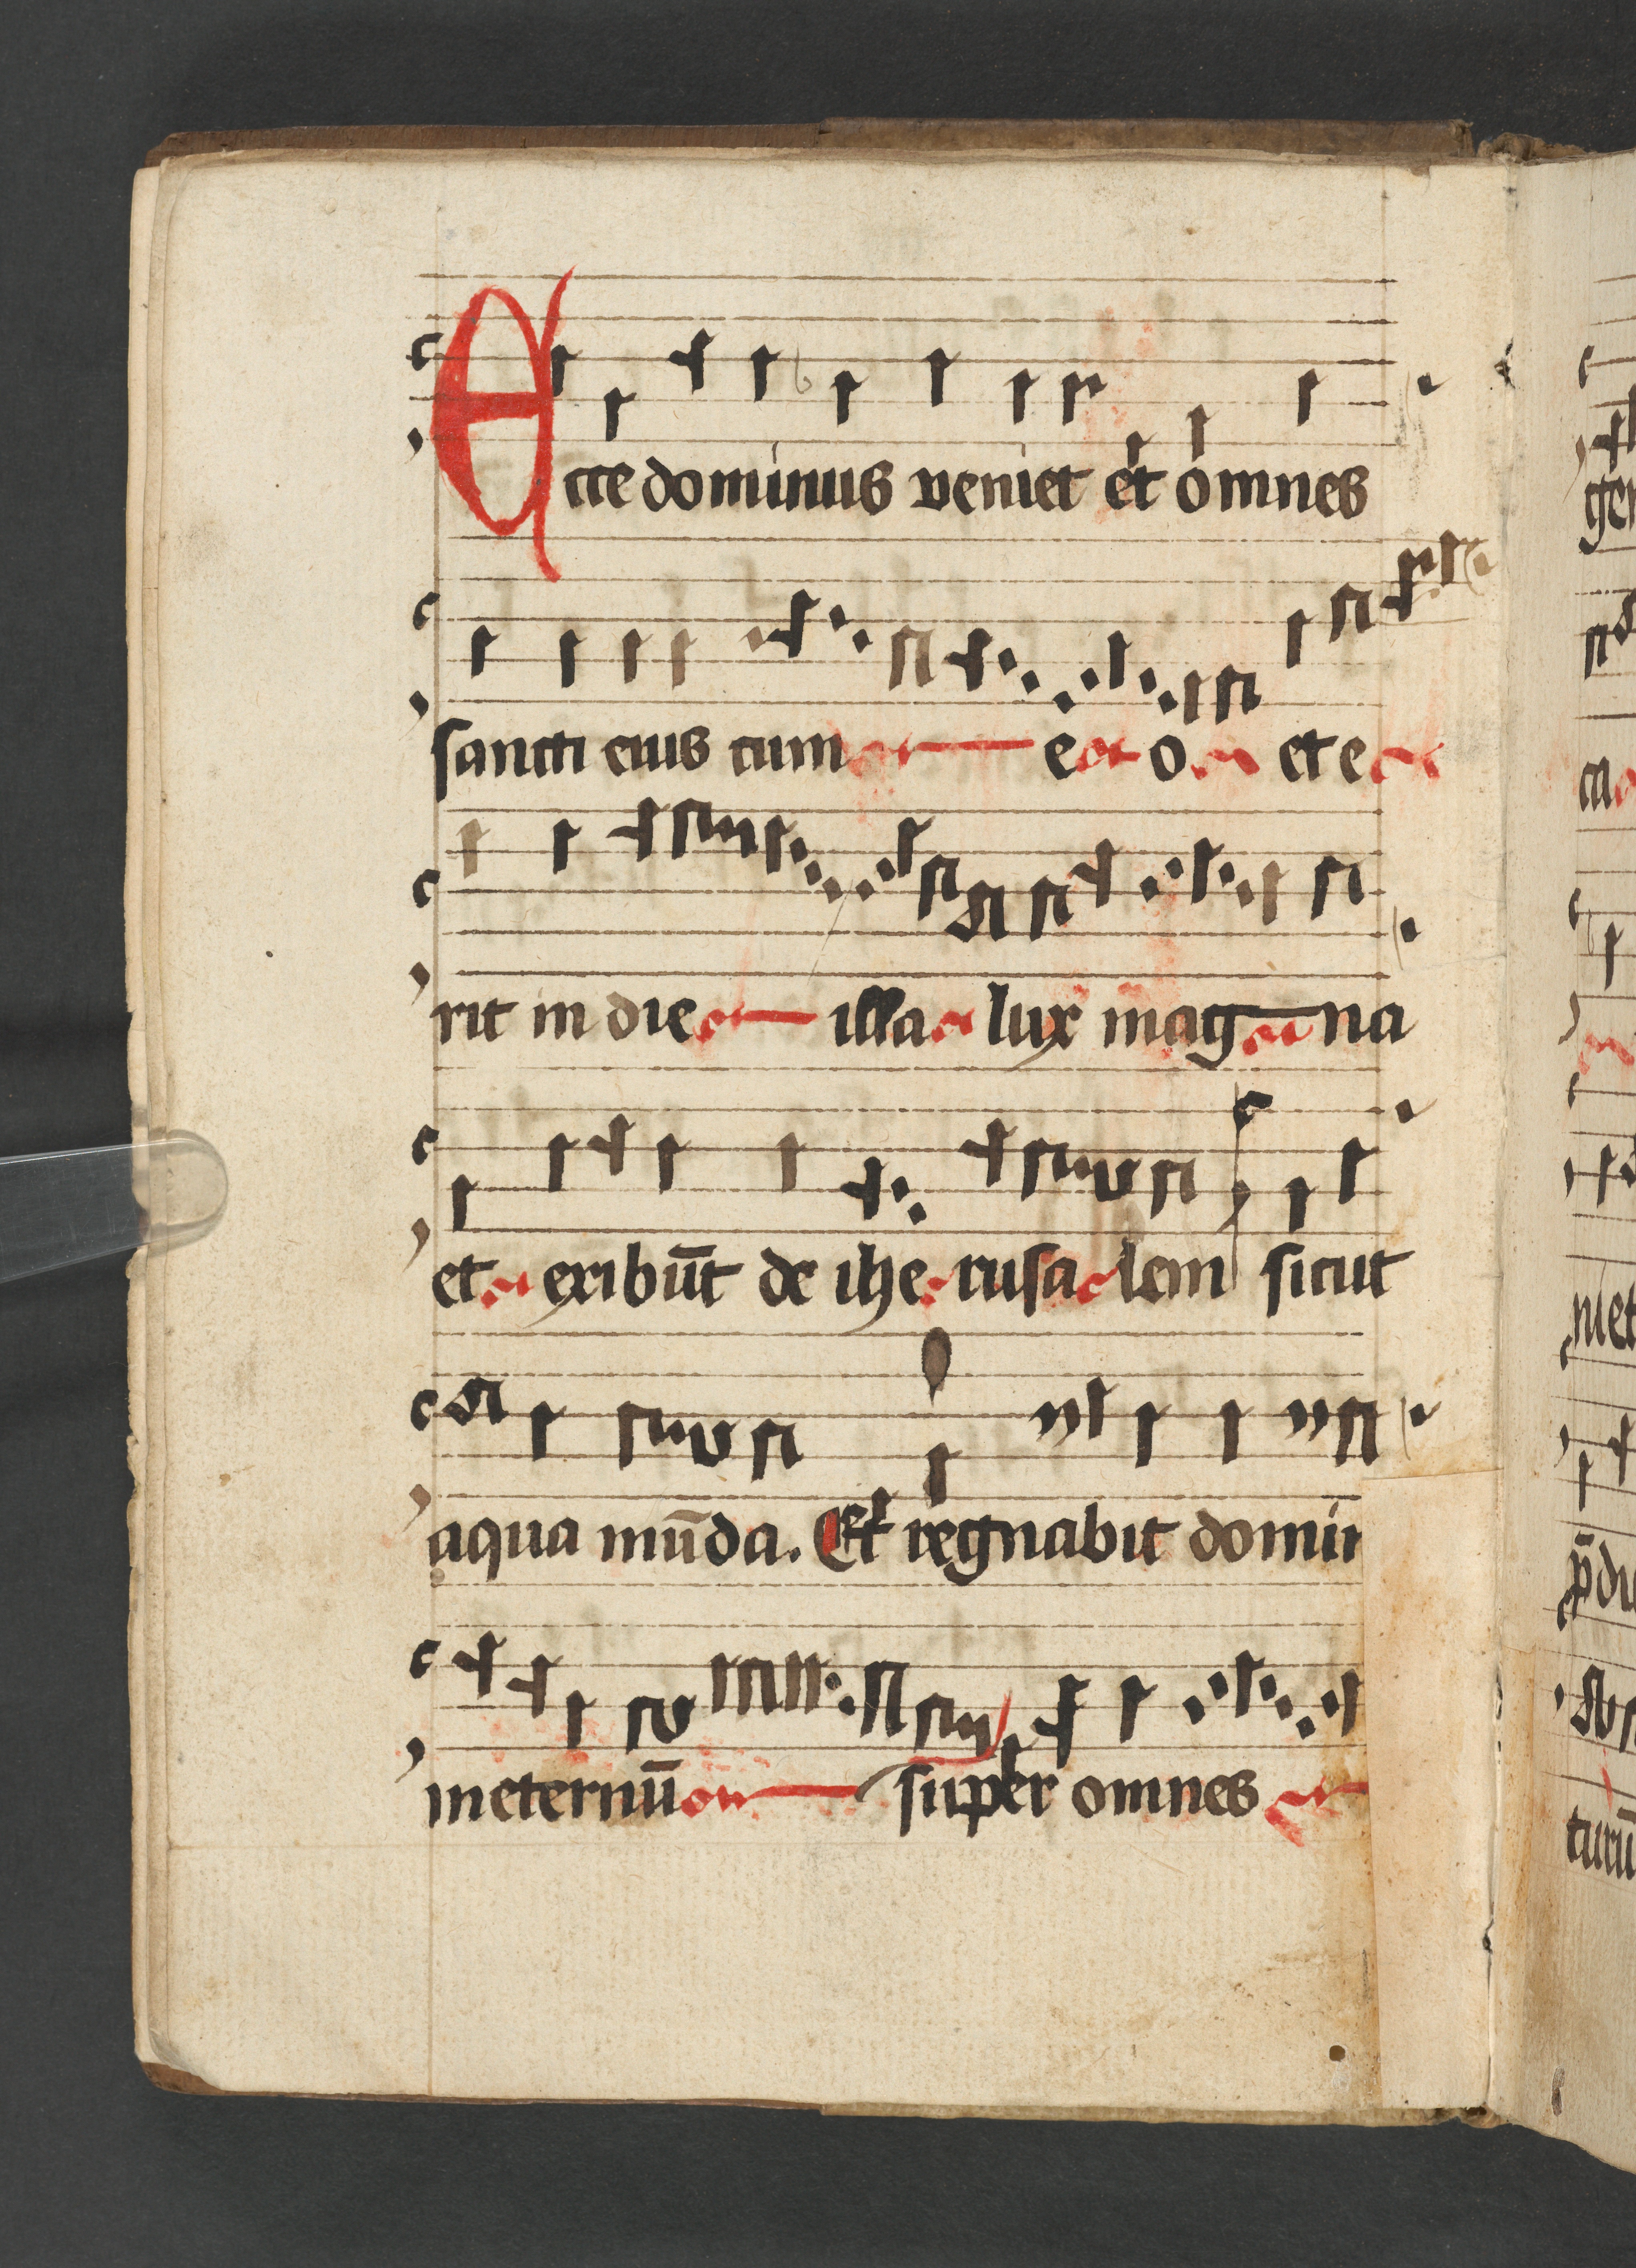 Ecce dominus veniet et omnes
sancti eius cum e o et e
rit in die illa lux mag na
et exibūt de ihe rusa lem sicut
aqua mūda. Et regnabit domin
in eternū super omnes